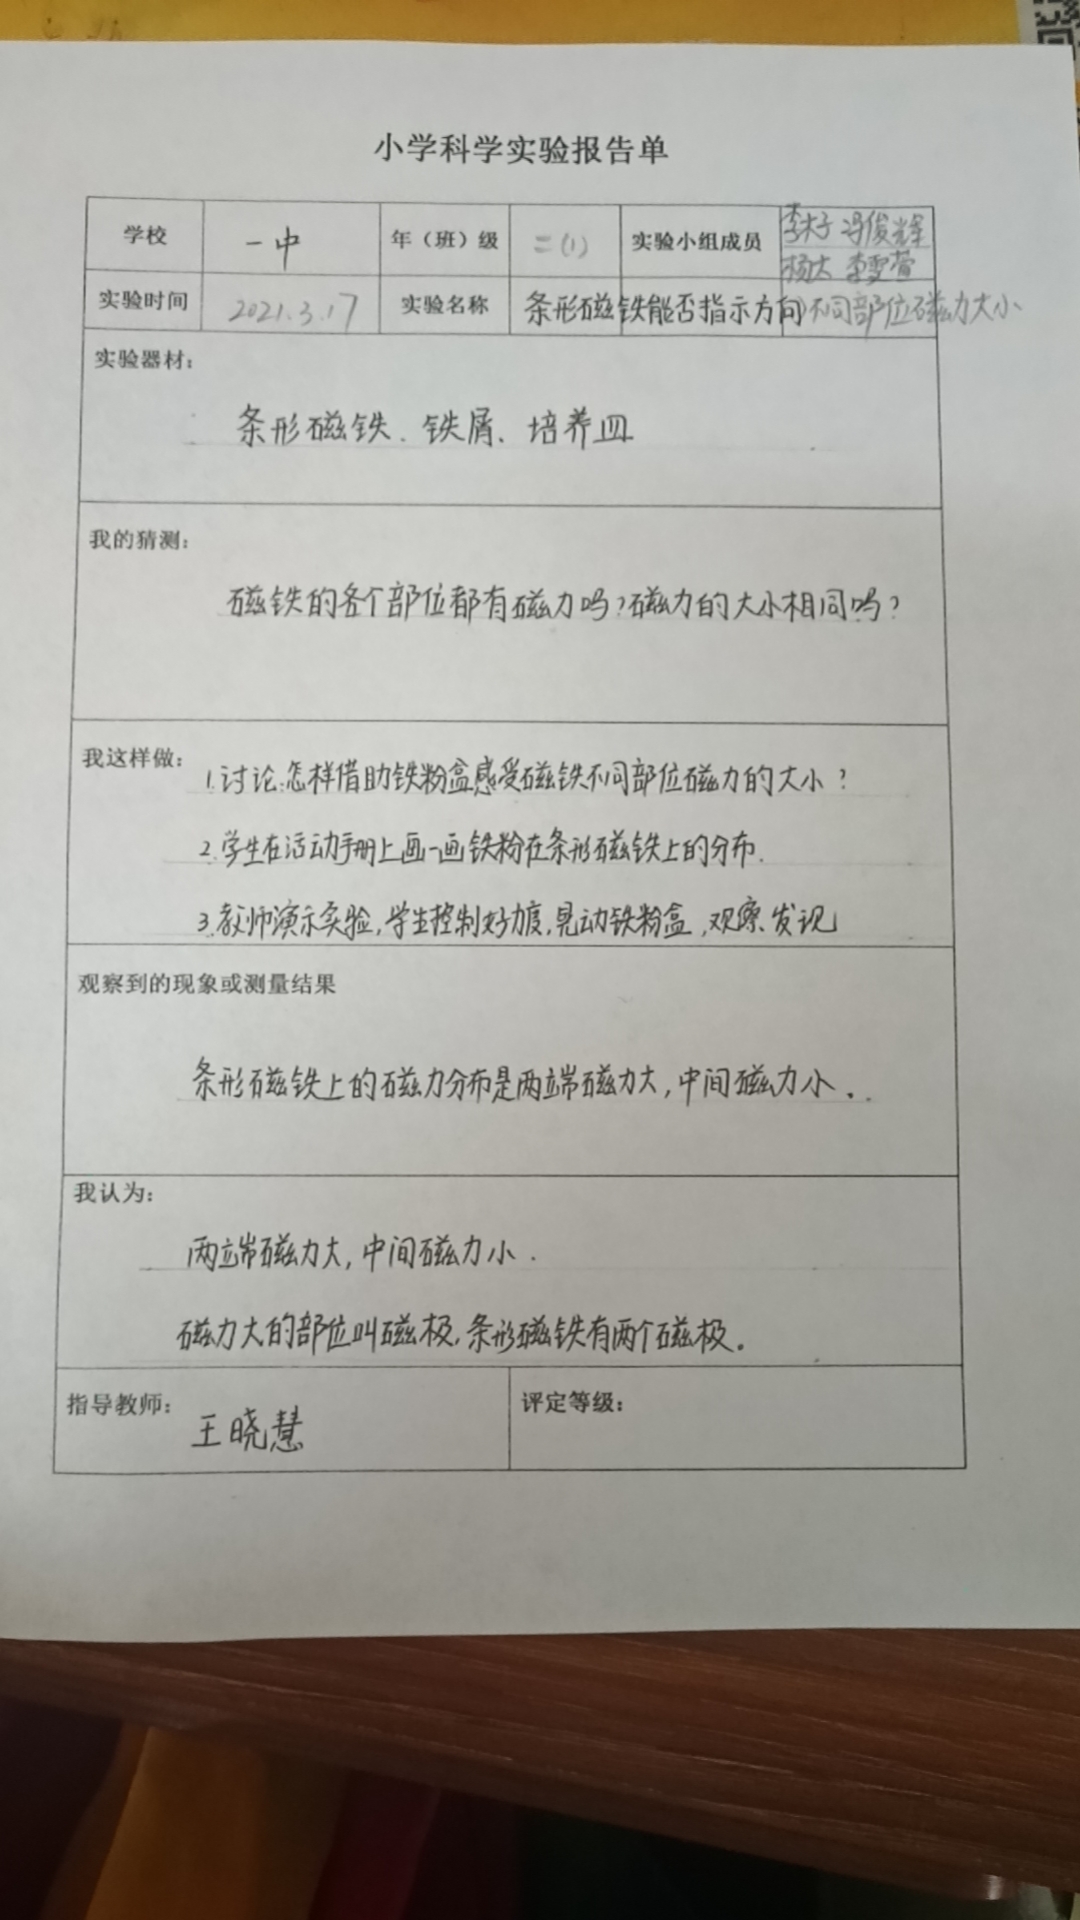 小学科学实验报告单
学校 一中 年（班）级 二(1) 实验小组成员 李木子 冯俊辉
杨大 李雯萱
实验时间 2021.3.17 实验名称 条形磁铁能否指示方向 不同部位磁力大小
实验器材：
条形磁铁、铁屑、培养皿
我的猜测：
磁铁的各个部位都有磁力吗？磁力的大小相同吗？
我这样做：
1.讨论：怎样借助铁粉盒感受磁铁不同部位磁力的大小？
2.学生在活动手册上画一画铁粉在条形磁铁上的分布.
3.教师演示实验,学生控制好力度,晃动铁粉盒,观察、发现
观察到的现象或测量结果
条形磁铁上的磁力分布是两端磁力大,中间磁力小.
我认为：
两端磁力大,中间磁力小.
磁力大的部位叫磁极,条形磁铁有两个磁极。
指导教师： 王晓慧 评定等级：